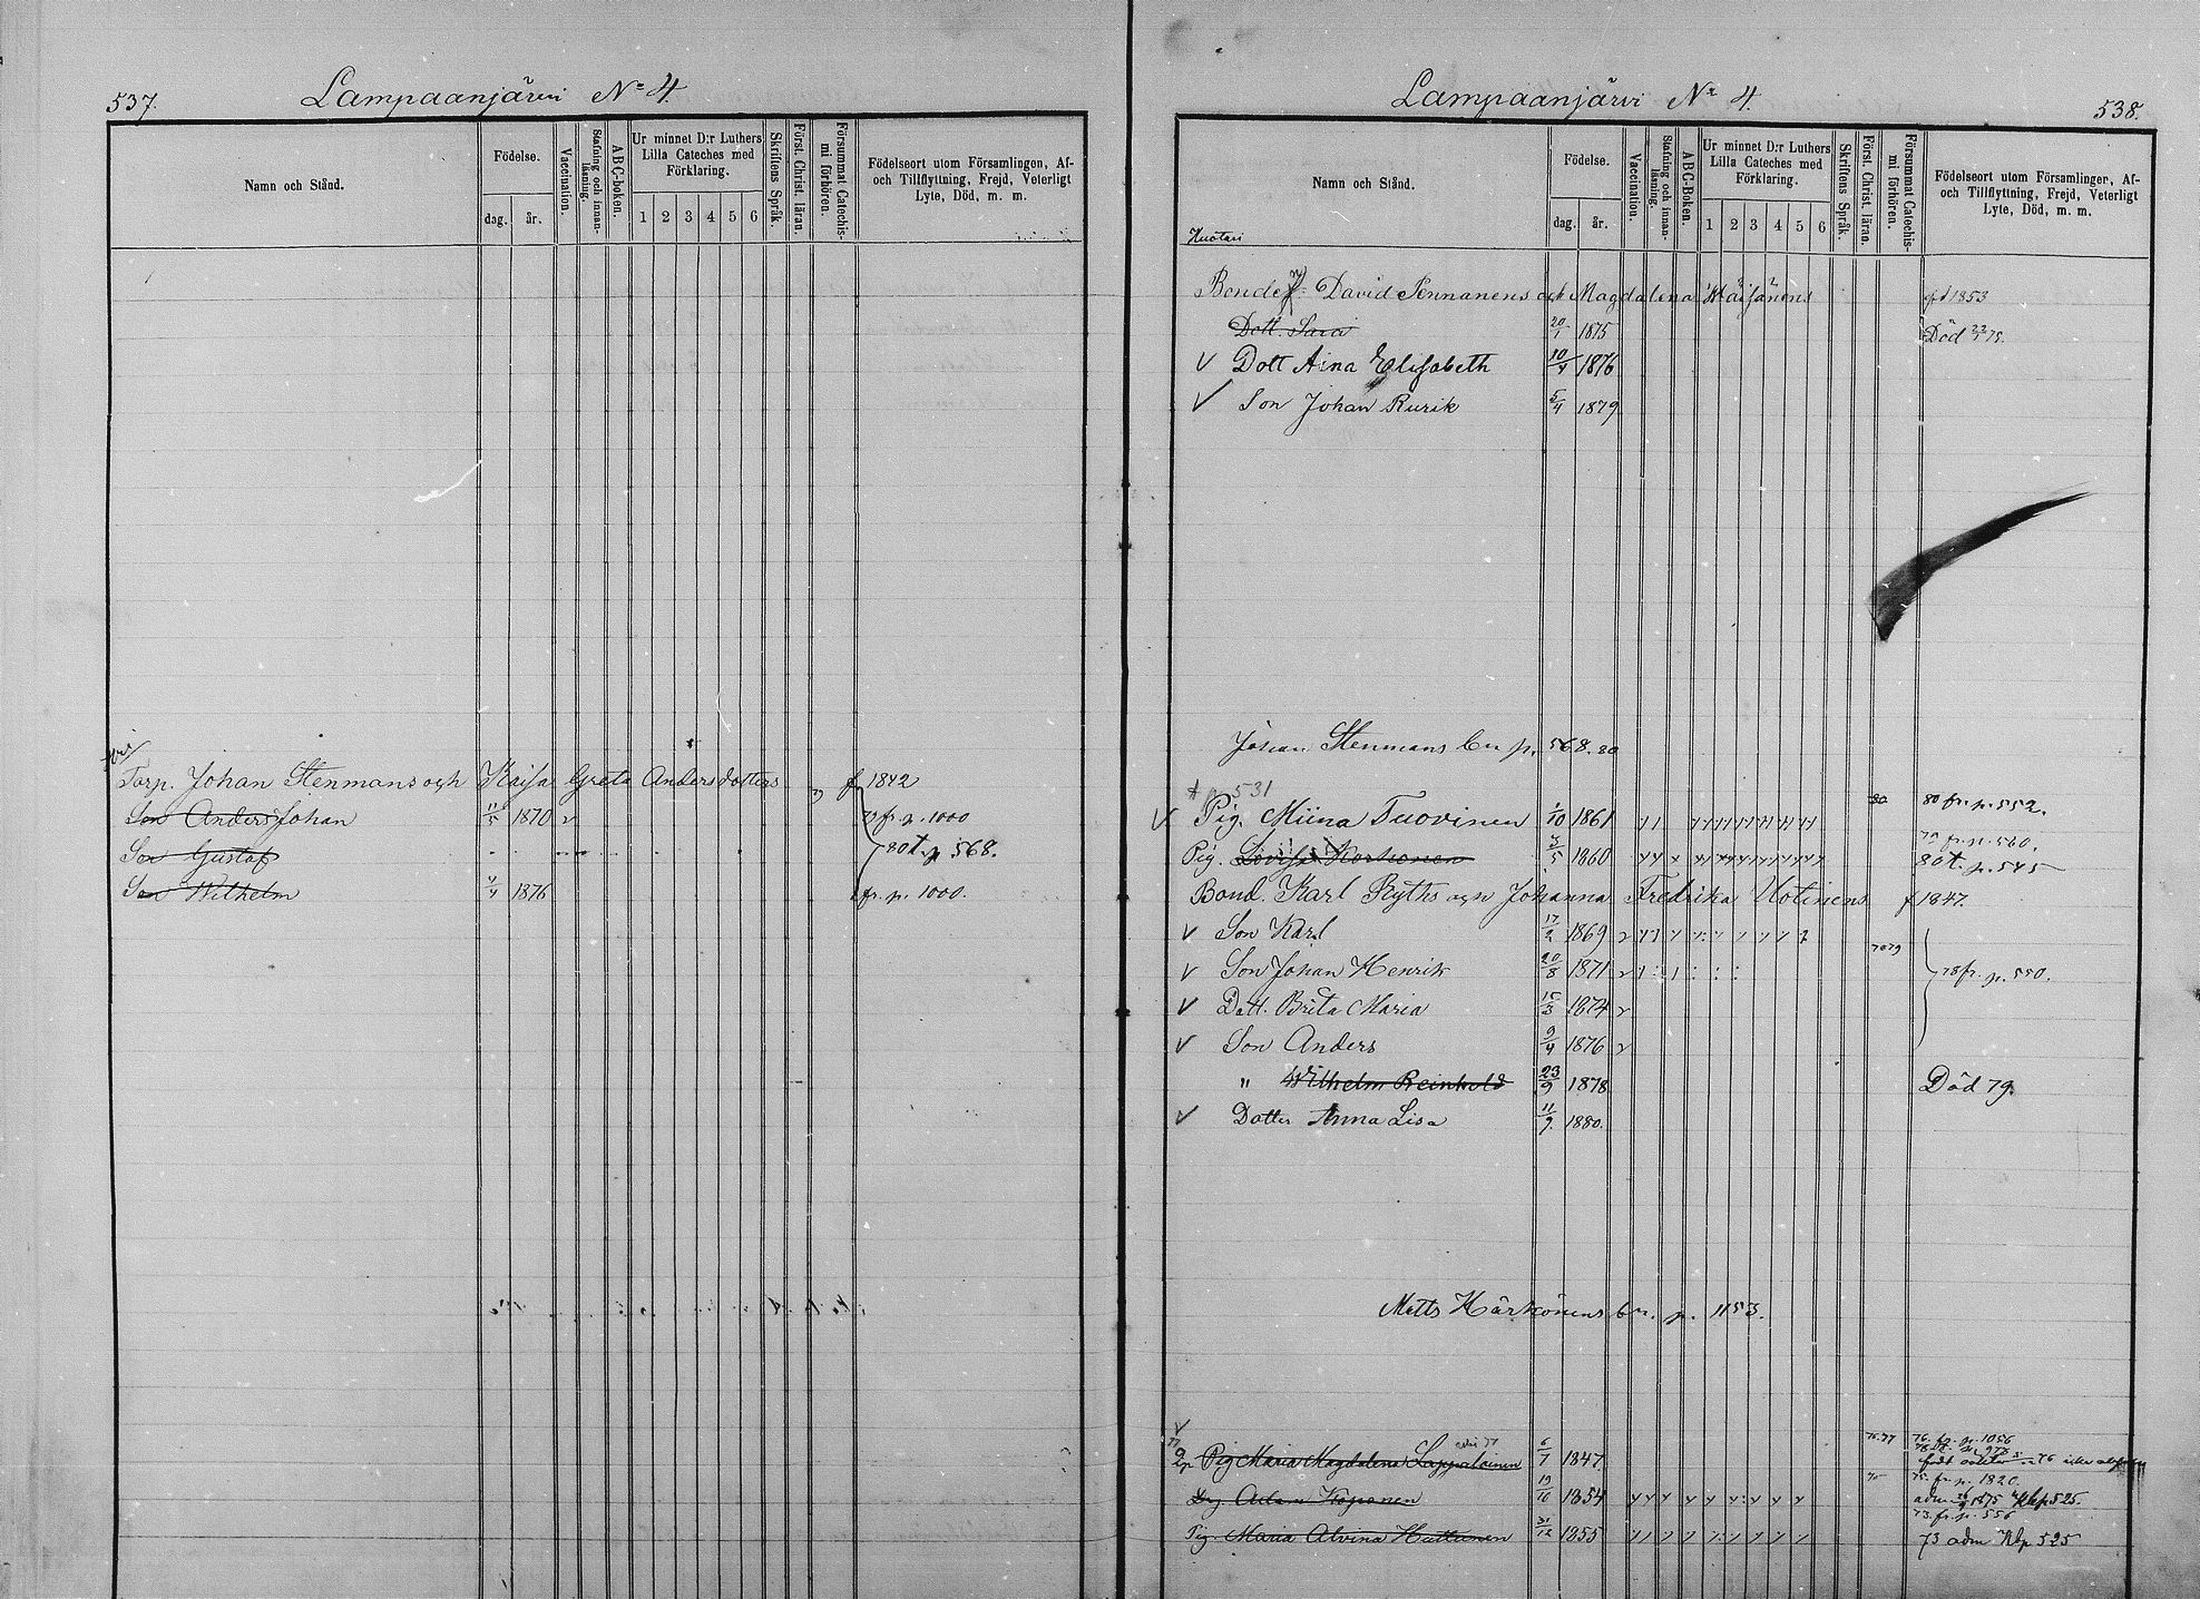 537.
Lampaanjärvi No 4.
Namn och Stånd.
Födelse.
dag. år.
Vaccination.
Stafning och innan-läsning.
ABC-boken.
Ur minnet D:r Luthers Lilla Cateches med Förklaring.
1 2 3 4 5 6
Skriftens Språk.
Först. Christ. läran.
Försummat Catechis-mi förhören.
Födelseort utom Församlingen, Af- och Tillflyttning, Frejd, Veterligt Lyte, Död, m. m.
Torp. Johan Stenmans och Kaisa Greta Andersdotters f 1842
Son Anders Johan 11/5 1870 79 fr. p. 1000
Son Gustaf 80 t. p 568.
Son Wilhelm 4/4 1876 fr. p. 1000.
Lampaanjärvi Nr 4.
538.
Namn och Stånd.
Födelse.
dag. år.
Vaccination.
Stafning och innan-läsning.
ABC-Boken.
Ur minnet D:r Luthers Lilla Cateches med Förklaring.
1 2 3 4 5 6
Skriftens Språk.
Först. Christ. läran.
Försummat Catechis-mi förhören.
Födelseort utom Församlingen, Af- och Tillflyttning, Frejd, Veterligt Lyte, Död, m. m.
Huotari
David Pennanens och Magdalena 1853
Dott. Sara 20/1 1875 Död 22/1 75.
V Dott Aina Elisabeth 10/4 1876
V Son Johan Rurik 5/4 1879
Johan Stenmans bn p. 568. 80
p. 531
V Pig. Miina Tuovinen 1/10 1861 80 80 fr. p. 552.
Pig. Lovisa Korhonen 3/5 1860 79 fr. p. 560.
80 t. p. 545
Bond. Karl Ryths och Johanna Fredrika Hotinens f 1847.
V Son Karl 17/2 1869
V Son Johan Henrik 20/8 1871 78 79 78 fr. p. 550.
V Dott. Brita Maria 15/3 1874
V Son Anders 9/4 1876
" Wilhelm Reinhold 23/9 1878 Död 79.
V Dotter Anna Lisa 11/9. 1880.
Matts Härkönens bn. p. 1153.
V
77
Pig Maria Magdalena Lappalainen 6/7 1847. 76.77 76. fr. p. 1056
Drg. Adam Koponen 19/10 1854 75 75. fr. p. 1820
adm 1875 Kbp 525.
73. fr. p. 556
Pig. Maria Alvina Huttunen 31/12 1855 73 adm Kbp 525